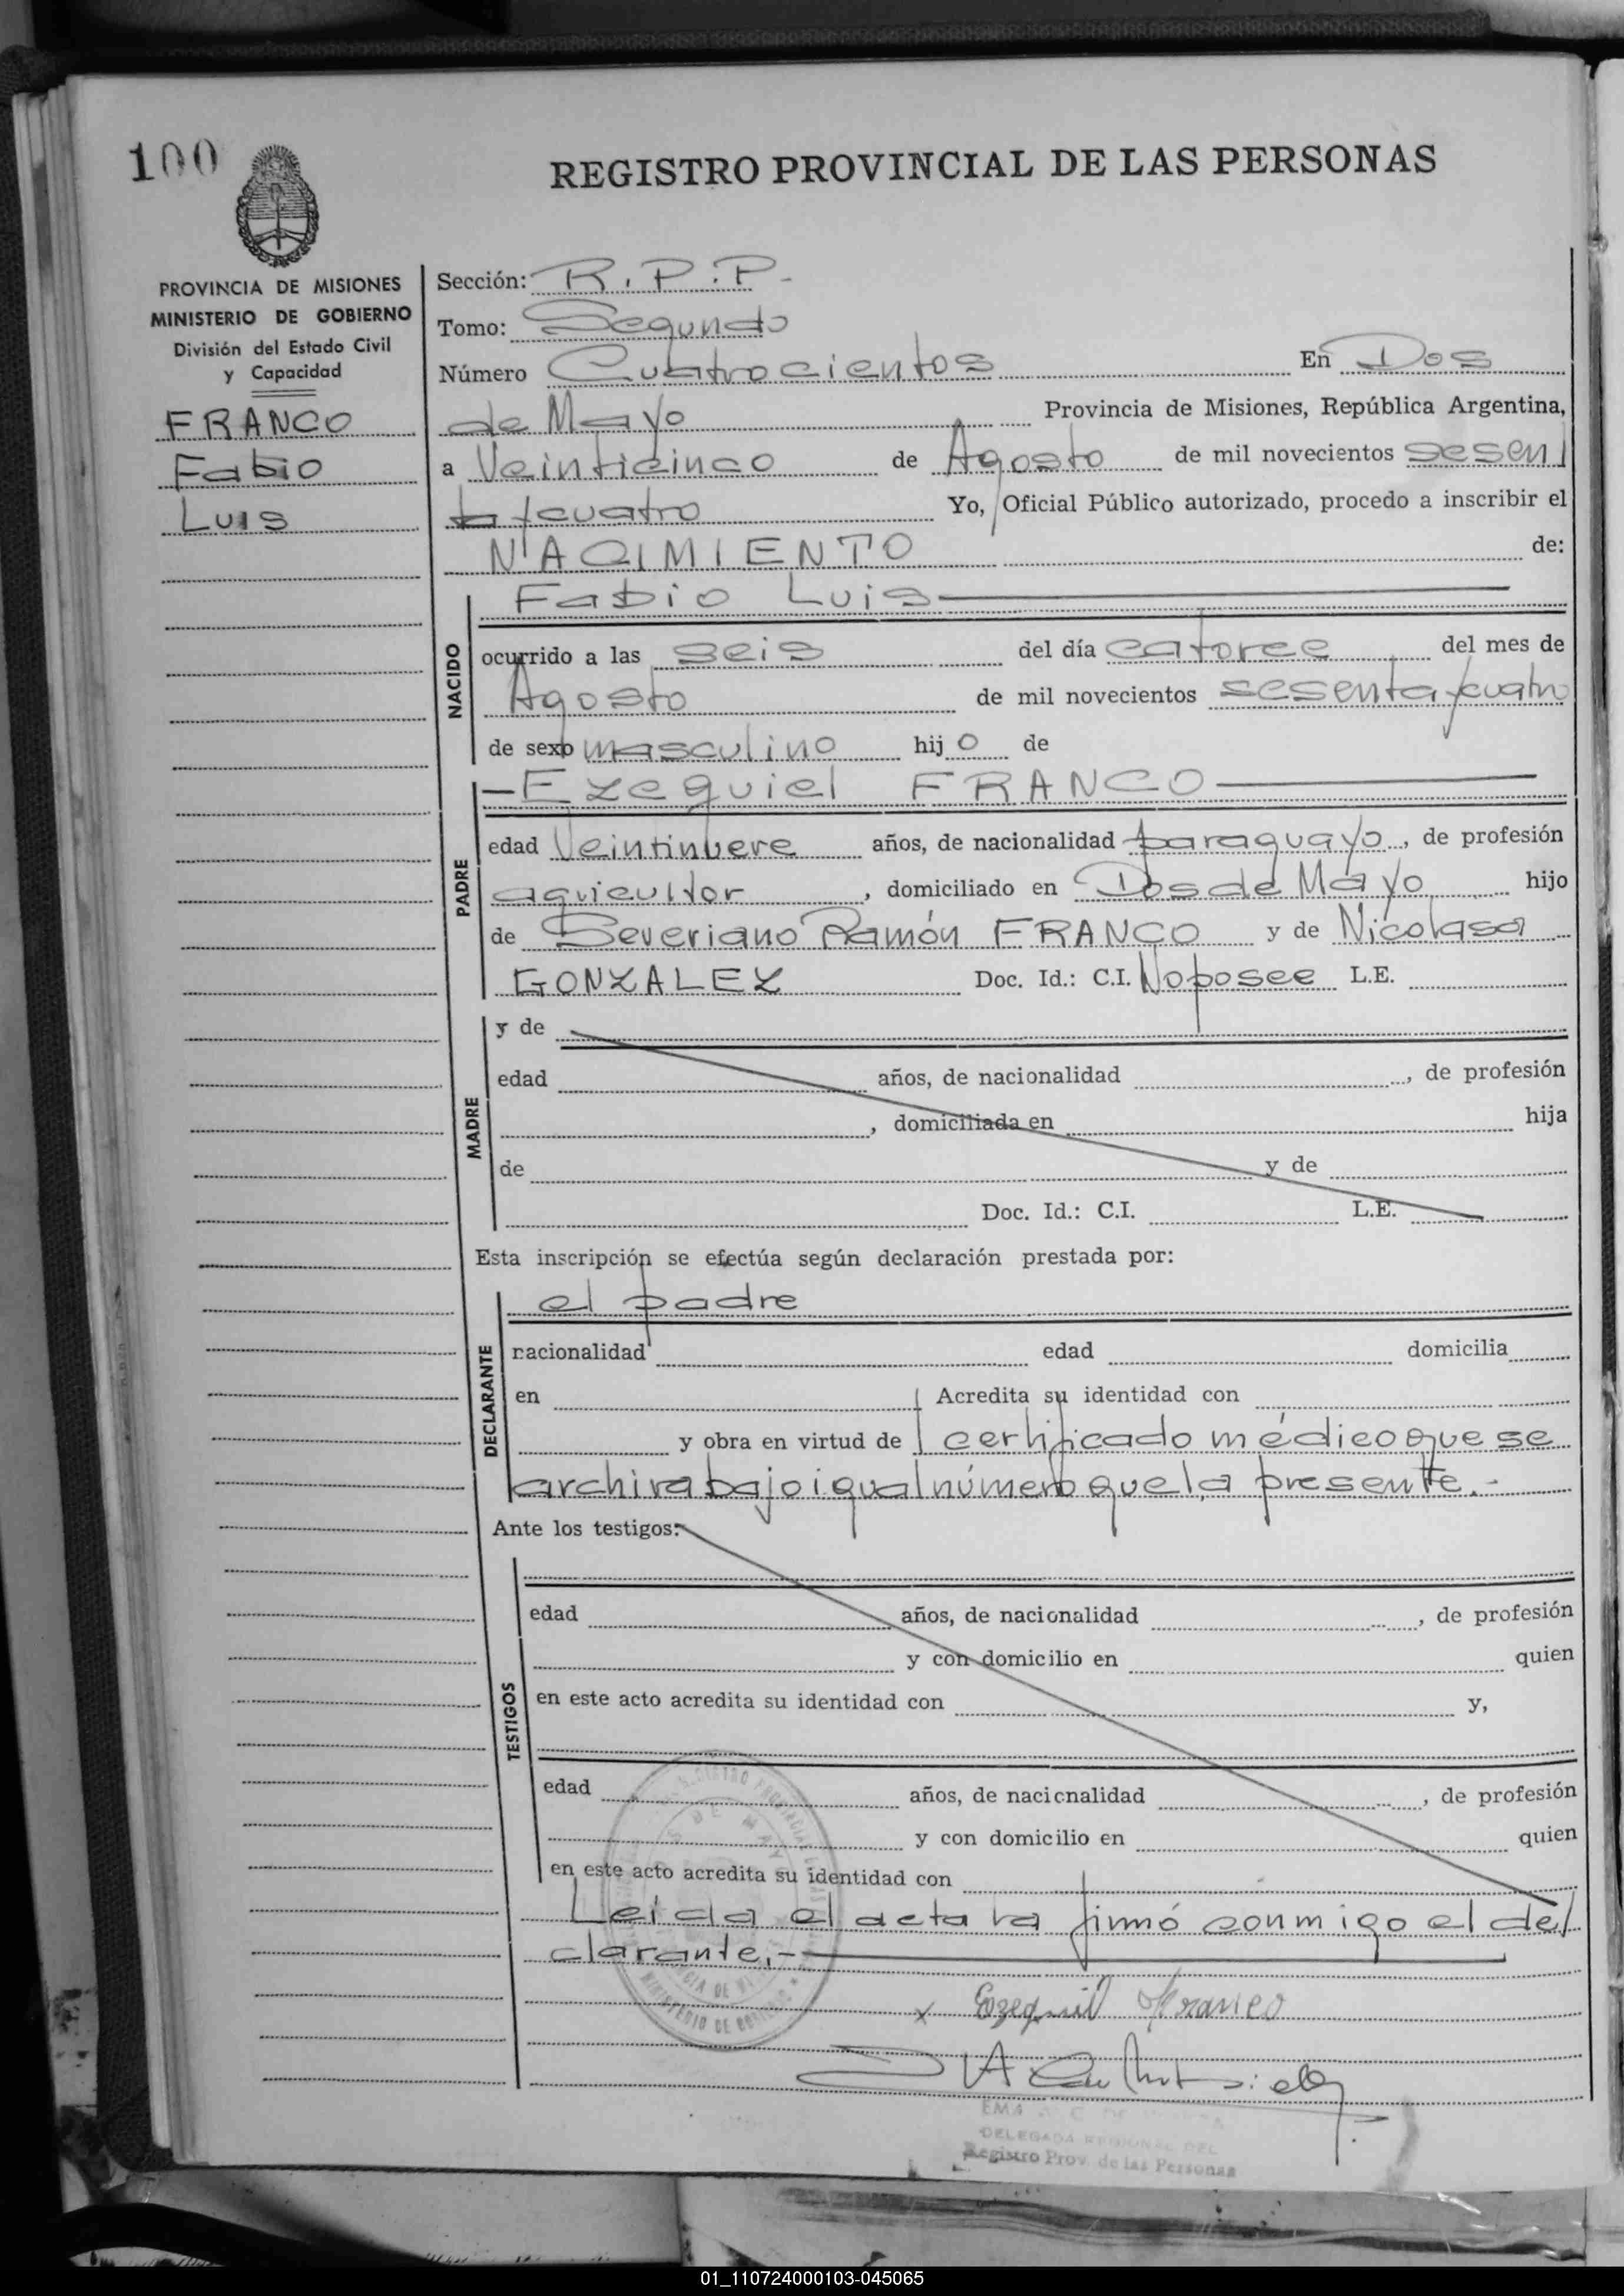 100
REGISTRO PROVINCIAL DE LAS PERSONAS
PROVINCIA DE MISIONES
MINISTERIO DE GOBIERNO
División del Estado Civil
y Capacidad
FRANCO
Fabio
Luis
Sección: R.P.P.-
Tomo: Segundo
Número Cuatrocientos En Dos
de Mayo Provincia de Misiones, República Argentina,
a Veinticinco de Agosto de mil novecientos sesen
ta y cuatro Yo, Oficial Público autorizado, procedo a inscribir el
NACIMIENTO de:
NACIDO
Fabio Luis
ocurrido a las seis del día catorce del mes de
Agosto de mil novecientos sesenta y cuatro
de sexo masculino hijo de
PADRE
-Ezequiel FRANCO
edad Veintinueve años, de nacionalidad paraguayo, de profesión
agricultor, domiciliado en Dos de Mayo hijo
de Severiano Ramón FRANCO y de Nicolasa
GONZALEZ Doc. Id.: C.I. No posee L.E.
MADRE
y de
edad años, de nacionalidad , de profesión
, domiciliada en hija
de y de
Doc. Id.: C.I. L.E.
Esta inscripción se efectúa según declaración prestada por:
DECLARANTE
el padre
nacionalidad edad domicilia
en Acredita su identidad con
y obra en virtud de certificado médico que se
archiva bajo igual número que la presente.-
Ante los testigos:
TESTIGOS
edad años, de nacionalidad , de profesión
y con domicilio en quien
en este acto acredita su identidad con y,
edad años, de nacionalidad , de profesión
y con domicilio en quien
en este acto acredita su identidad con
Leída el acta la firmó conmigo el de
clarante.-
x Ezequiel Franco
MINISTERIO DE GOBIERNO
DELEGADA REGIONAL DEL
Registro Prov. de las Personas
01_110724000103-045065